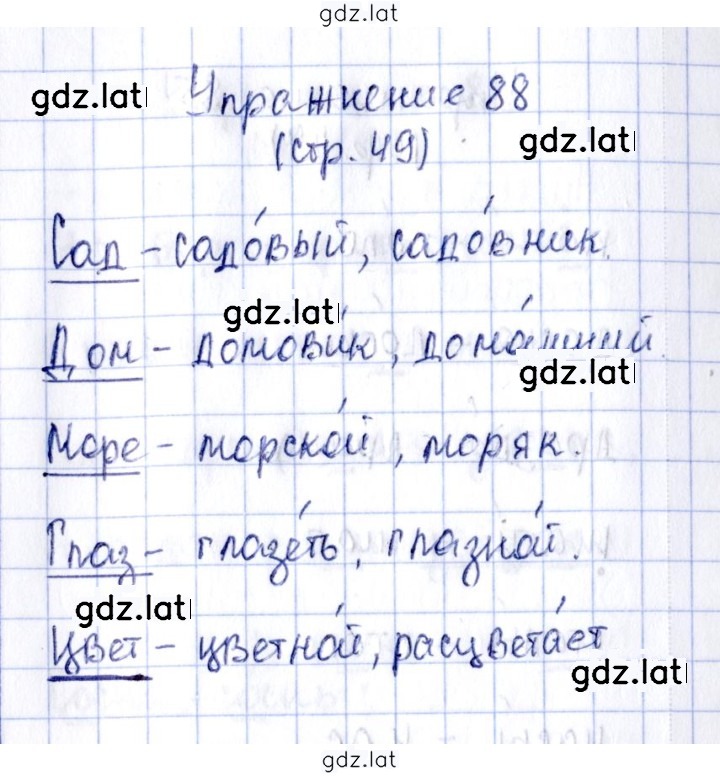 gdz.lat
gdz.lat
Упражнение 88
(стр. 49)
gdz.lat
Сад - садо́вый, садо́вник.
gdz.lat
Дом - домови́к, дома́шний.
gdz.lat
Море - морско́й, моряк.
Глаз - глазе́ть, глазно́й.
gdz.lat
Цвет - цветно́й, расцвета́ет
gdz.lat
gdz.lat